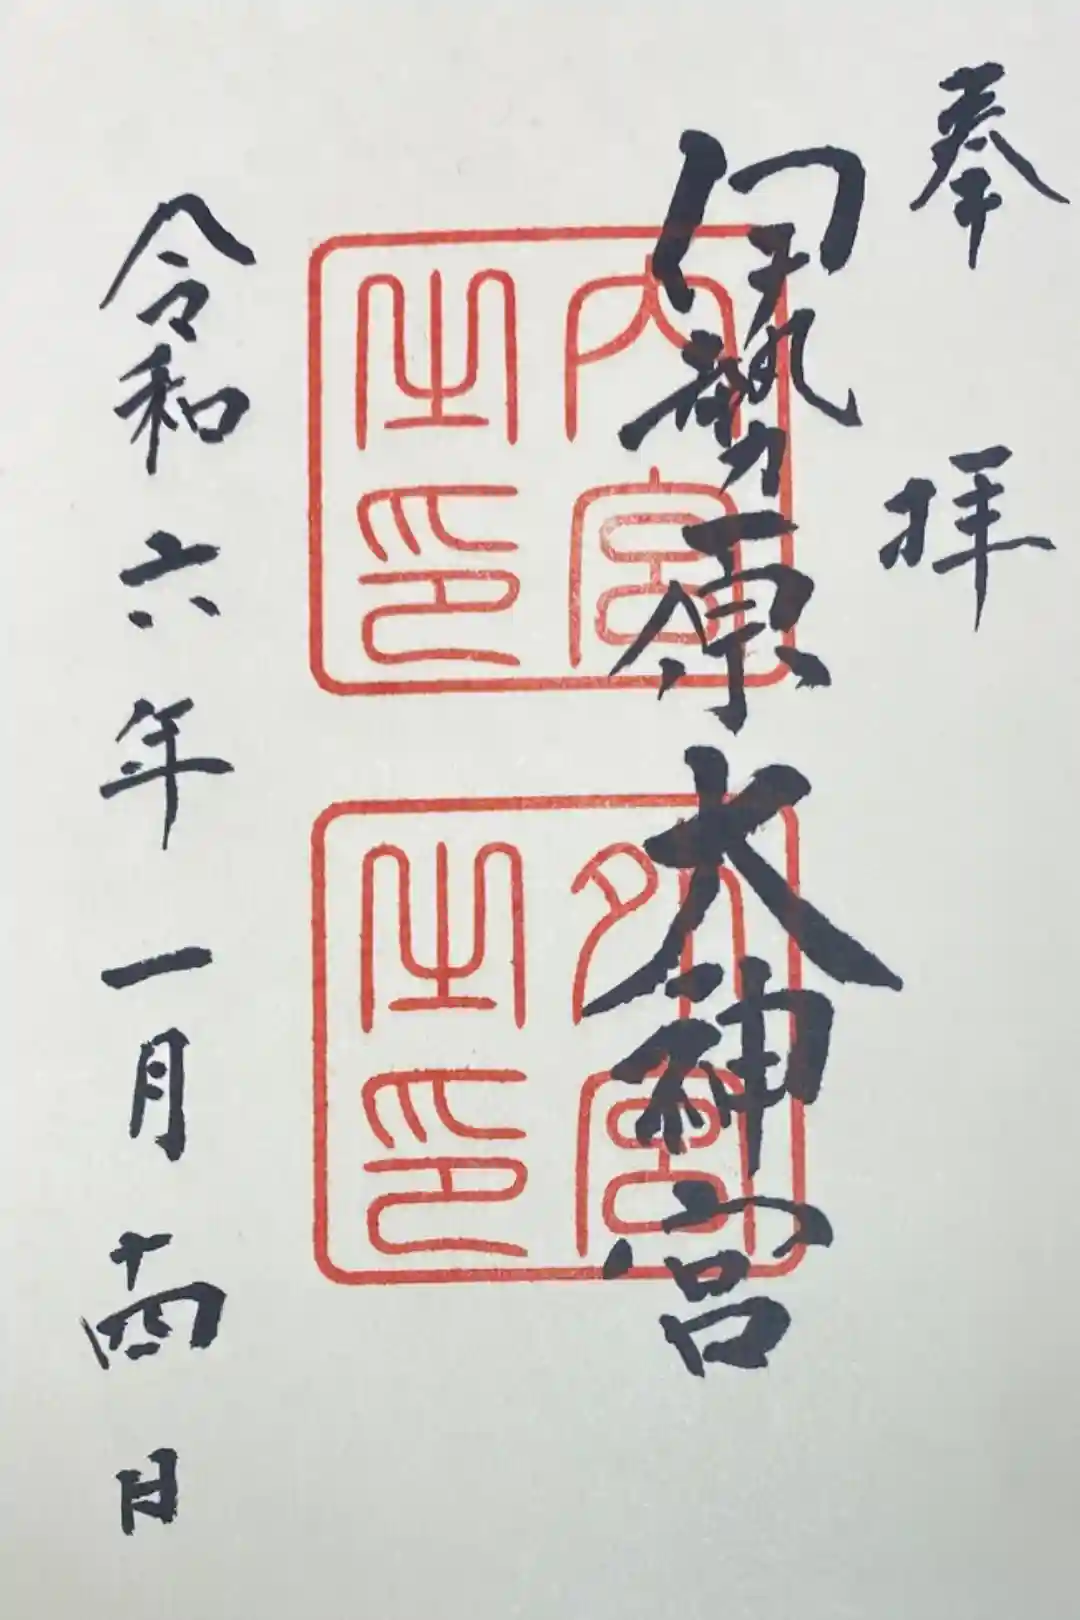 奉拝
伊勢原大神宮
内宮之印
外宮之印
令和六年一月十四日